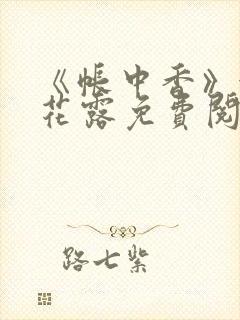 《帐中香》
花露免費閱
路七紫